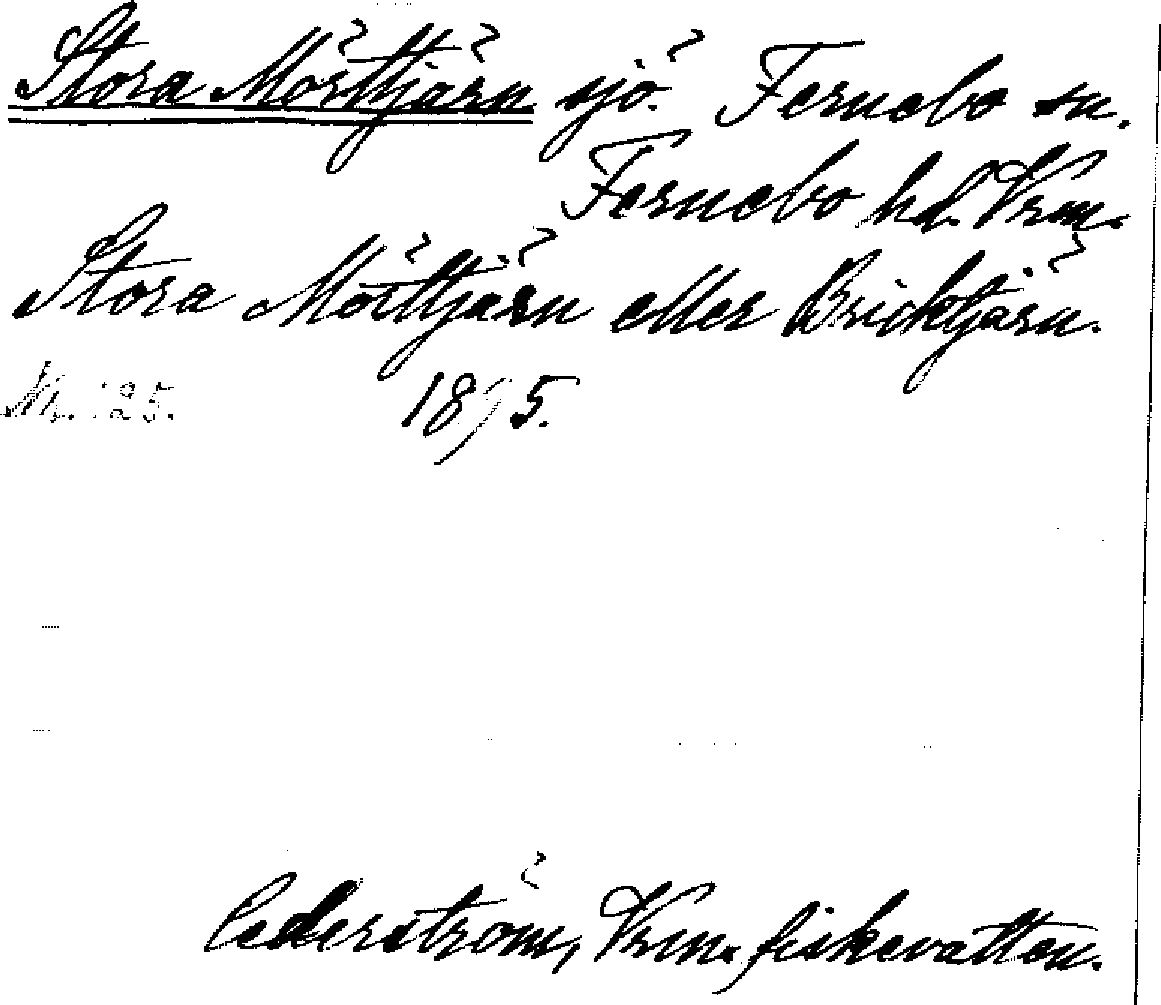 Stora Mörttjärn sjö. Fernebo sn.
Fernebo hd. Vrm.
Stora Mörttjärn eller Bricktjärn.
1895.
Cederström, Vrm. fiskevatten.